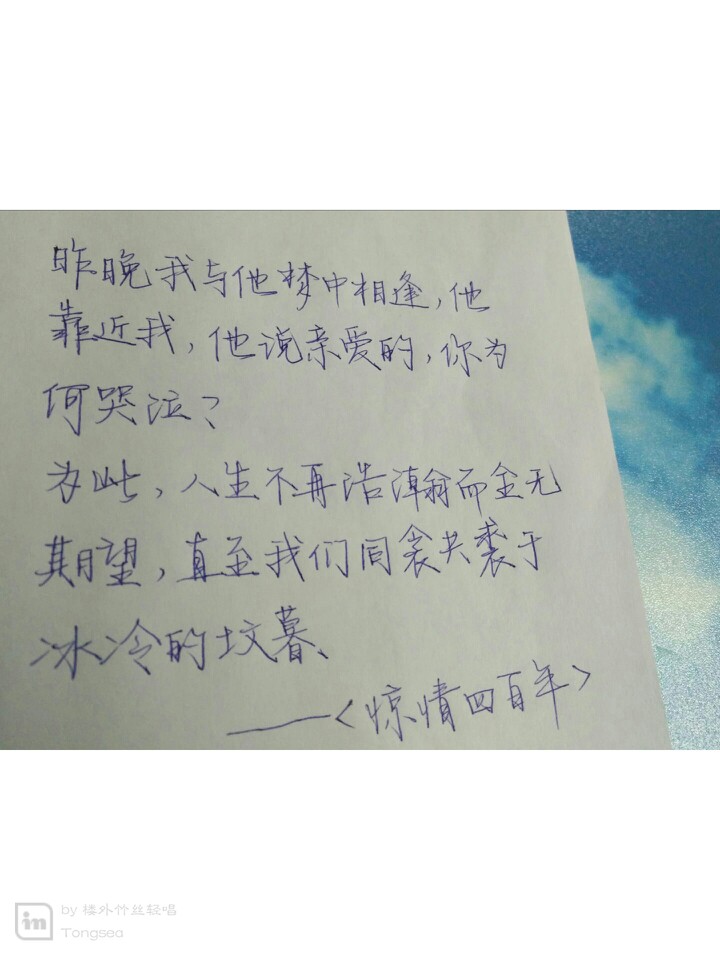 昨晚我与他梦中相逢,他
靠近我,他说亲爱的,你为
何哭泣?
为此,人生不再浩瀚而全无
期望,直至我们同衾共裘于
冰冷的坟暮、
——<惊情四百年>
by 楼外竹丝轻唱
Tongsea